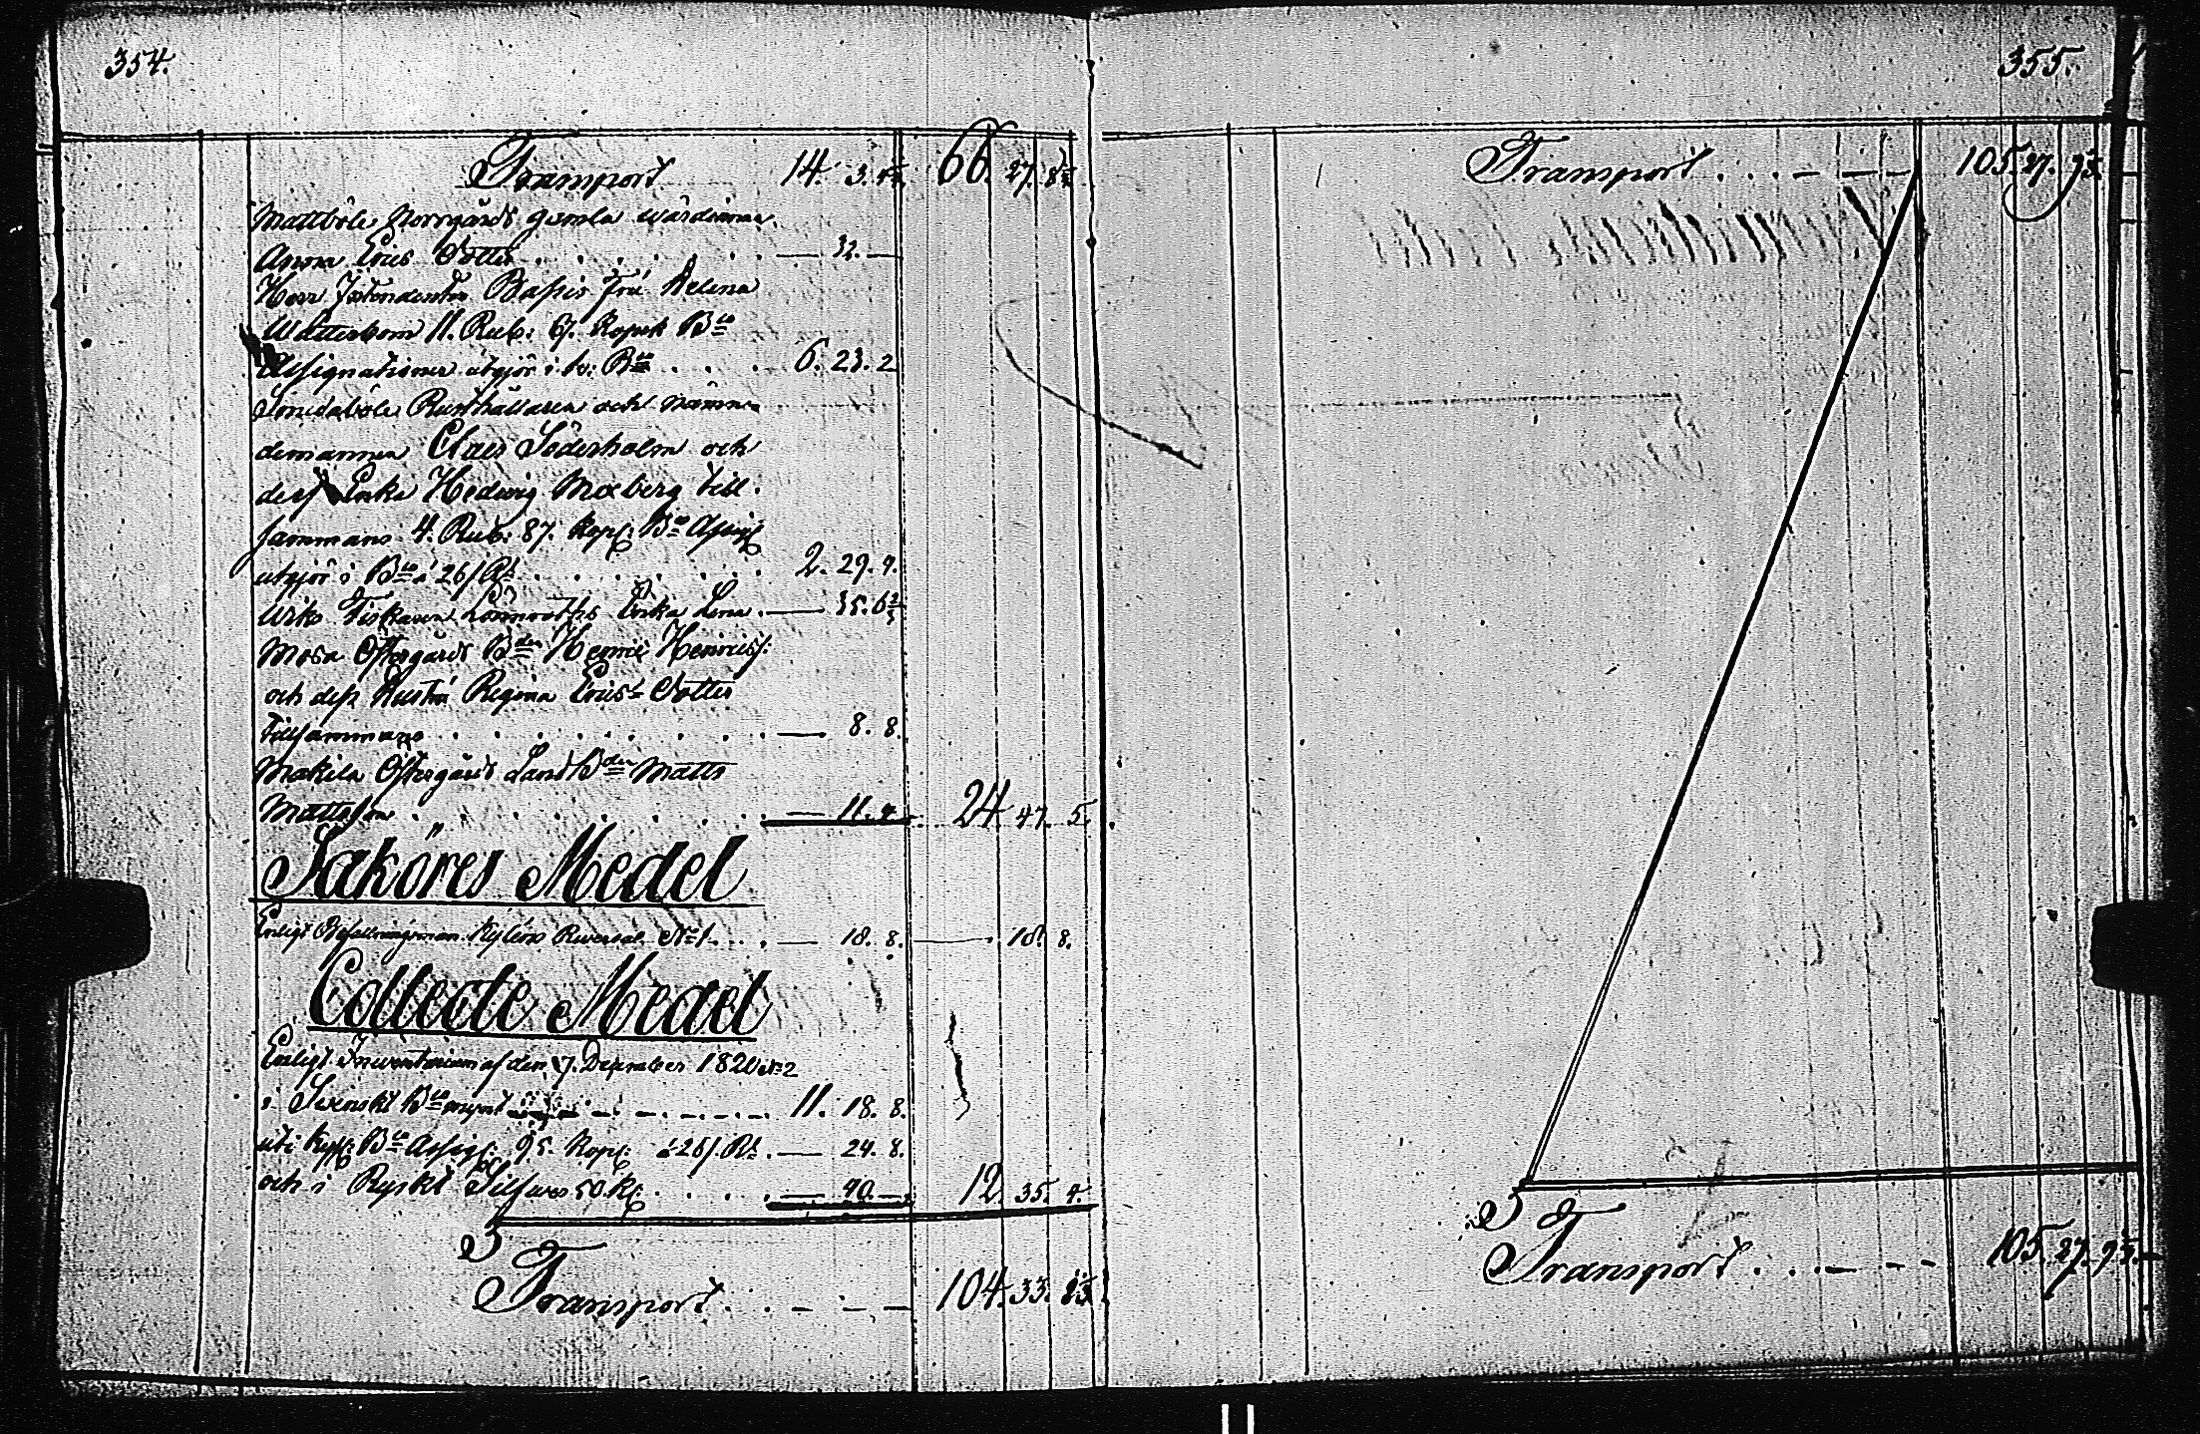 354.
Transport 14. 3. 66. 27.
Mattböle Norrgårds gamla wärdinna
Anna Erics Dotter . . . . . . — 32. —
Herr Intendenten Basies Fru Helena
Watterbom 11. Rub: 67. Kopek B:co
Assignationer utgjör i Sv: B:co . . . 6. 23. 2.
Rusthållaren och nämn-
demannen Claes Söderholm och
dess Enka Hedwig Moberg till-
sammans 4. Rub: 87. Kop: B:co Assig:
utgjör i B:co a 26 s R:l . . . . . . 2. 29. 4.
Wiks Fiskaren Enka Lena . — 35. 6
Mosa Östergårds B:den Henric Henricss:
och dess Hustru Regina Erics Dotter
tillsammans . . . . . . . . — 8. 8.
Makila Östergårds Land B:den Matts
Mattsson . . . . . . . — 11. 4. 24. 47. 5.
Saköres Medel
Enligt Befallningsman Kyléns Reversal N:o 1. . . — 18. 8. — 18. 8.
Collecte Medel
Enligt Inventarium af den 7. December 1820 N:o 2
i Svenskt B:co mynt 11. 18. 8.
uti Ryss: B:co Assig: 95. Kop: a 26 s. R:l . — 24. 8.
och i Ryskt Silfver 50 K: . . . . — 40. — 12. 35. 4.
Transport . . — — — 104. 33.
355.
Transport . . . — — — 105. 27.
Transport . . . — — — 105. 27.